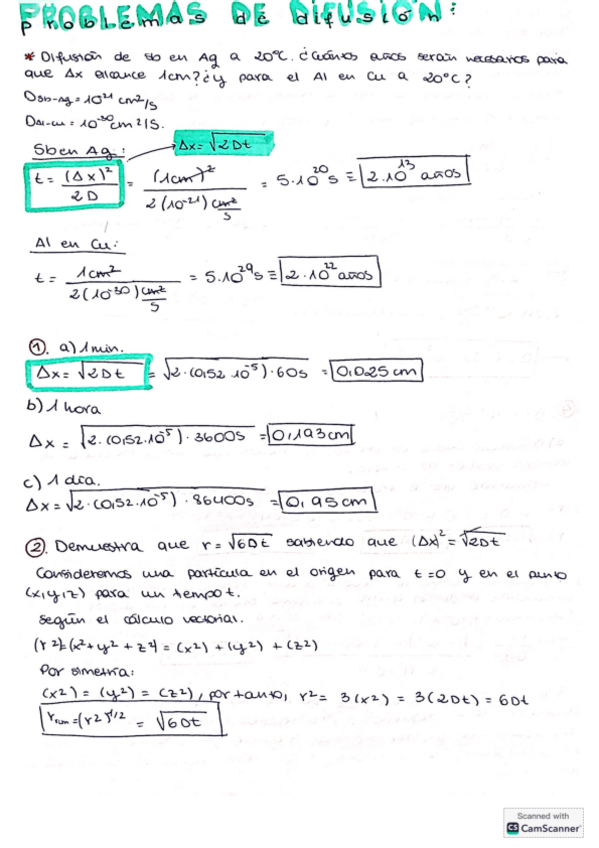 PROBLEMAS DE DIFUSIÓN:
* Difusión de Sb en Ag a 20°C. ¿Cuántos años serán necesarios para
que Δx alcance 1cm? ¿y para el Al en Cu a 20°C?
DSb-Ag = 10²¹ cm²/s
DAl-Cu = 10⁻³⁰ cm²/s.
Sb en Ag: → Δx = √2Dt
t = (Δx)²/2D = (1cm)²/2(10⁻²¹) cm²/s = 5·10²⁰ s ≡ 2·10¹³ años
Al en Cu:
t = 1cm²/2(10⁻³⁰) cm²/s = 5·10²⁹ s ≡ 2·10²² años
①. a) 1 min.
Δx = √2Dt = √2·(0,52·10⁻⁵)·60s = 0,025 cm
b) 1 hora
Δx = √2·(0,52·10⁻⁵)·3600s = 0,193 cm
c) 1 día.
Δx = √2·(0,52·10⁻⁵)·86400s = 0,95 cm
②. Demuestra que r = √6Dt sabiendo que (Δx)² = √2Dt
Consideremos una partícula en el origen para t=0 y en el punto
(x,y,z) para un tiempo t.
Según el cálculo vectorial.
(r²) = (x² + y² + z²) = (x²) + (y²) + (z²)
Por simetría:
(x²) = (y²) = (z²), por tanto, r² = 3(x²) = 3(2Dt) = 6Dt
rrum = (r²)^1/2 = √6Dt
Scanned with
CS CamScanner